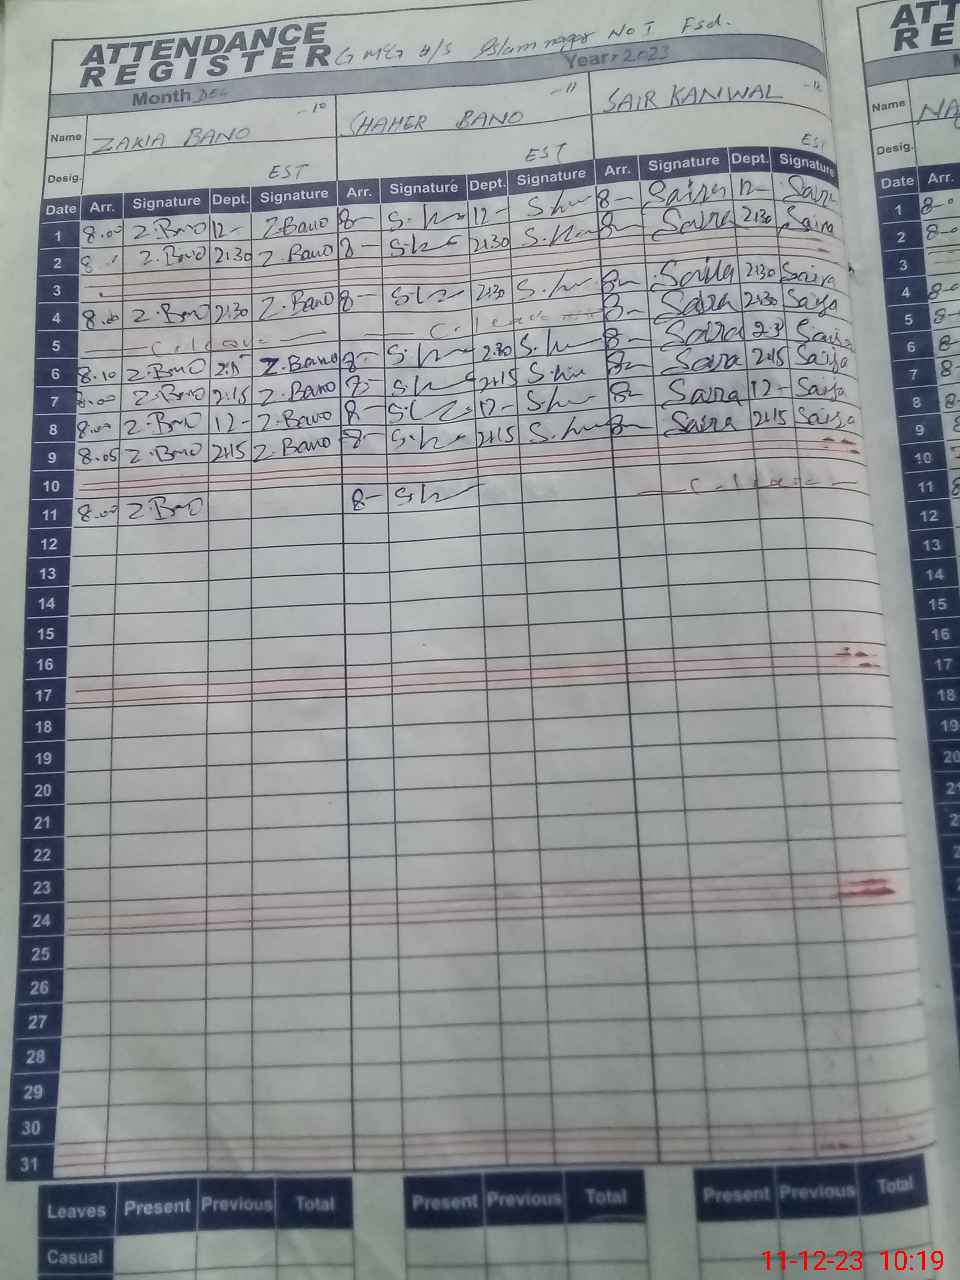 ATTENDANCE
REGISTER
No I Fsd.
Month Dec Year 2023
Name ZAKIA BANO -10 SHAHER BANO -11 SAIR KANWAL -12
Desig. EST EST EST
Date Arr. Signature Dept. Signature Arr. Signature Dept. Signature Arr. Signature Dept. Signature
1 8.00 Z.Bano 12- Z.Bano 8- 12- 8- Saira 12- Saira
2 Z.Bano 2:30 Z.Bano 8- 2:30 8- Saira 2:30 Saira
3
4 8.00 Z.Bano 2:30 Z.Bano 8- 2:30 8- Saira 2:30 Saira
5 C. leave C. leave 8- Saira 2:30 Saira
6 8.10 Z.Bano Z.Bano 8- 2:30 8- Saira 2:3 Saira
7 8.00 Z.Bano 2:15 Z.Bano 8- 2:15 8- Saira 2:15 Saira
8 8.00 Z.Bano 12- Z.Bano 8- 12- 8- Saira 12- Saira
9 8.05 Z.Bano 2:15 Z.Bano 8- 2:15 8- Saira 2:15 Saira
10
11 8.00 Z.Bano 8- C. leave
12
13
14
15
16
17
18
19
20
21
22
23
24
25
26
27
28
29
30
31
Leaves Present Previous Total Present Previous Total Present Previous Total
Casual
ATT
RE
Name NA
Desig.
Date Arr.
1 8-
2 8-
3
4 8-
5 8-
6 8-
7 8-
8 8-
9
10
11
12
13
14
15
16
17
18
19
20
11-12-23 10:19